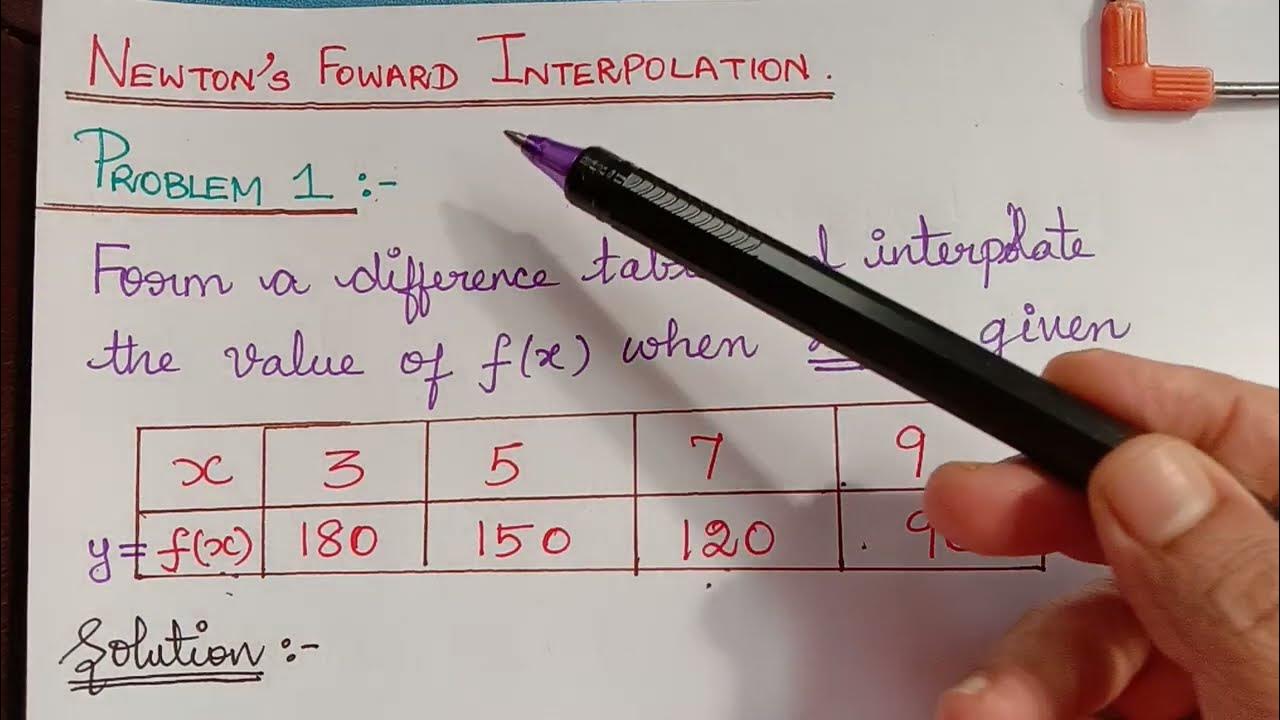 NEWTON'S FOWARD INTERPOLATION.
PROBLEM 1 :-
Form a difference interpolate
the value of f(x) when given
x 3 5 7 9
y = f(x) 180 150 120
Solution :-